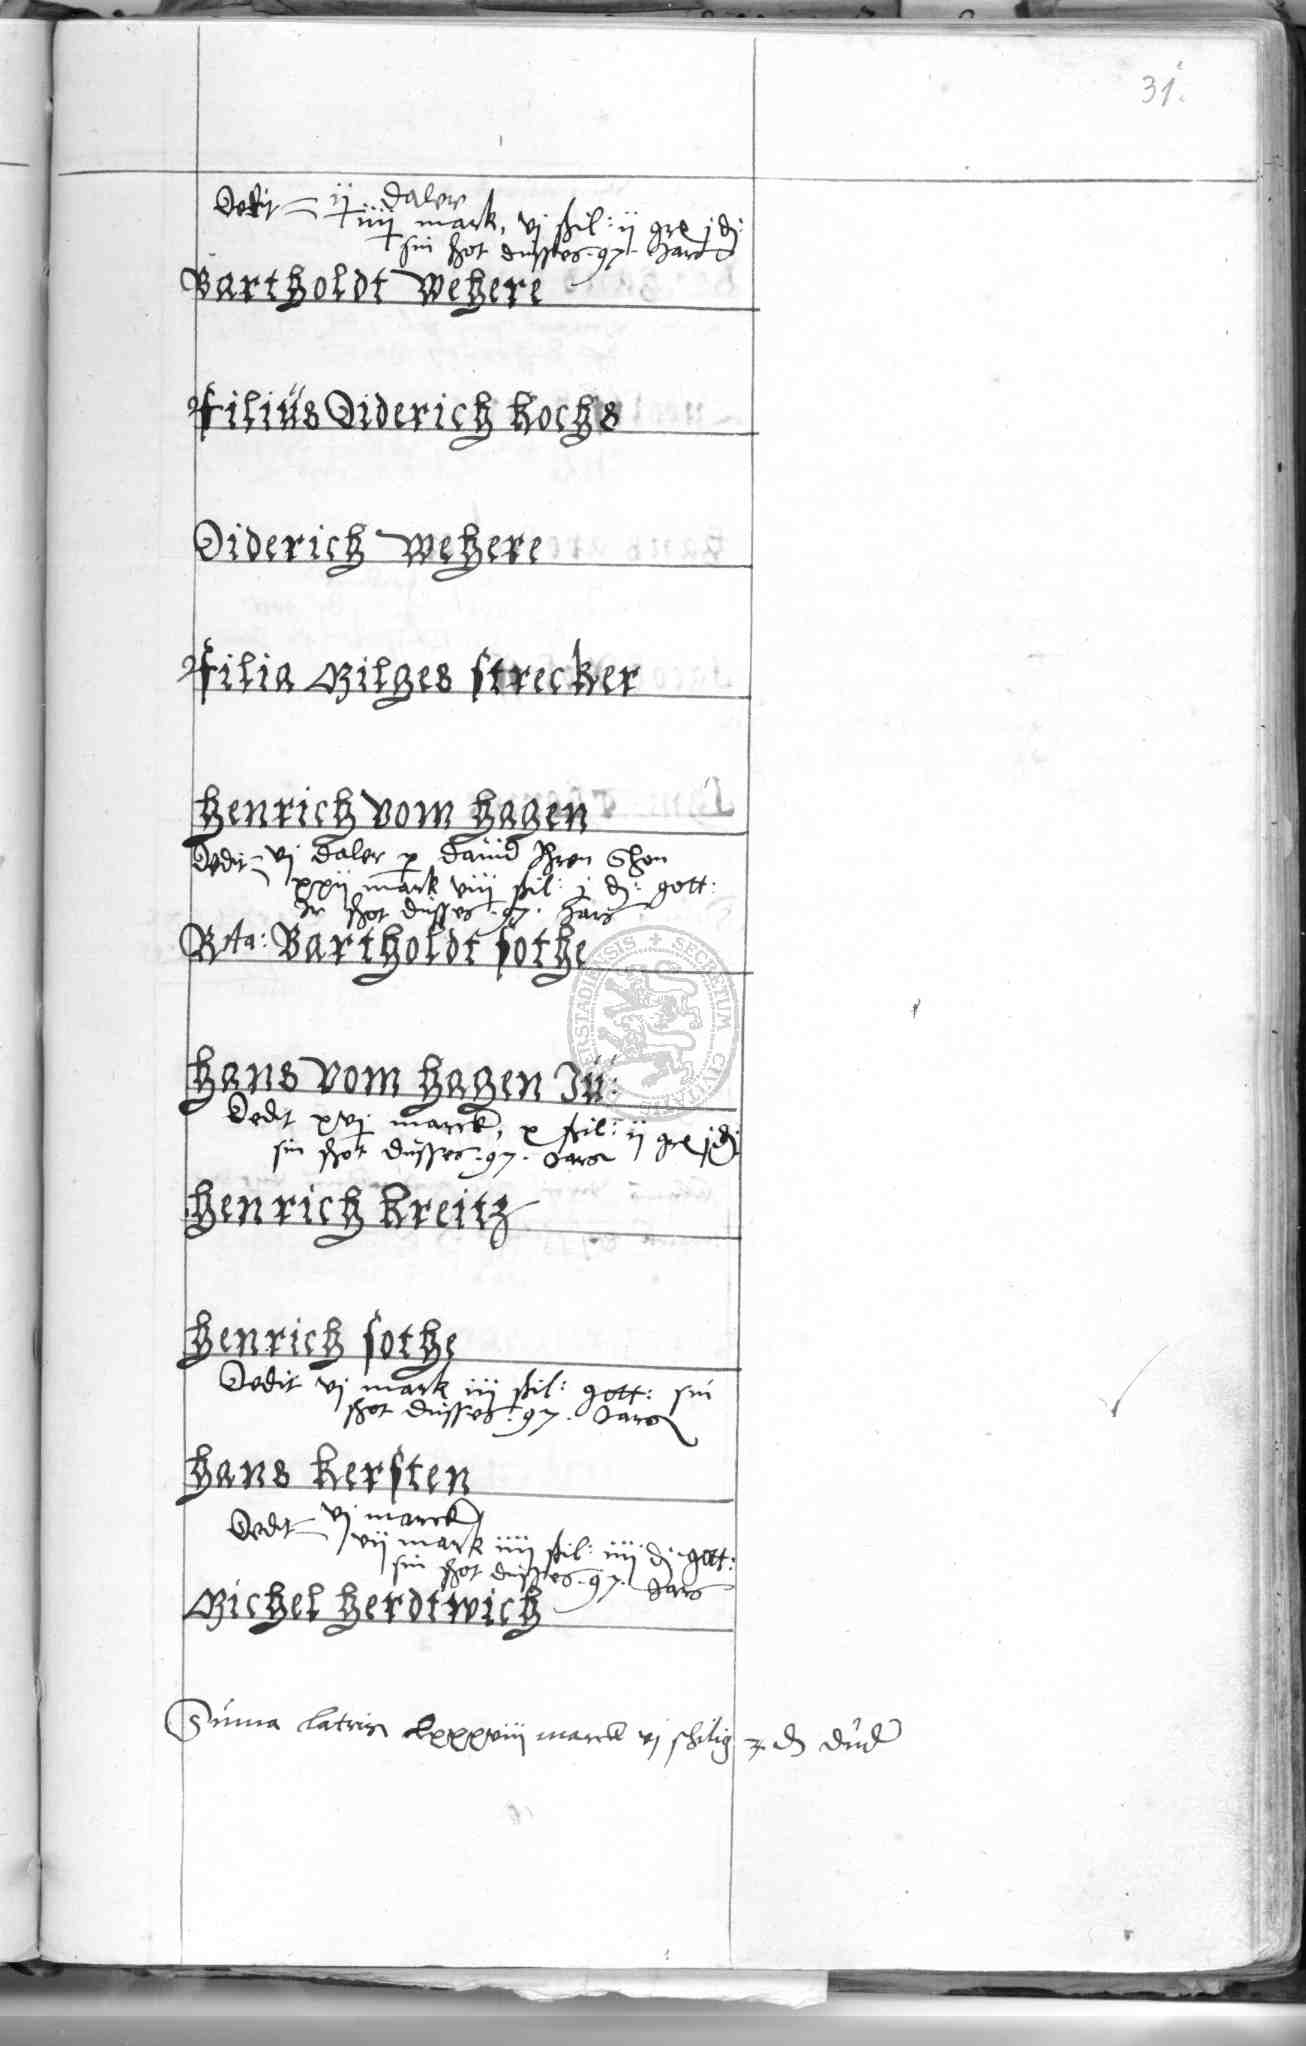 31.
Dedit ij daler
iiij mark, vj ßil: ij gre j d:
sin shot dusses .97. Jars
Bartholdt Wehere
filiüs Diderich Kochs
Diderich Wehere
filia Milges Strecker
Henrich vom Hagen
Dedit vj daler p david Ihren Shon
xxij mark viij ßil: j d: gott:
Ir shot dusses .97. Jars
Rta: Bartholdt Sothe
Hans vom Hagen Jü:
Dedit xvj marck, x ßil: ij gre j d:
sin shot dusses .97. Jars
Henrich Kreitz
Henrich Sothe
Dedit vj mark iij ßil: gott: sin
shot dusses .97. Jars
Hans Kersten
Dedit vj marck
vij mark iiij ßil: iiij d: gott:
sin shot dusses .97. Jars
Michel Herdtwich
Suma latris lxxxviij marck vj schilig d
SECRETUM CIVITATIS